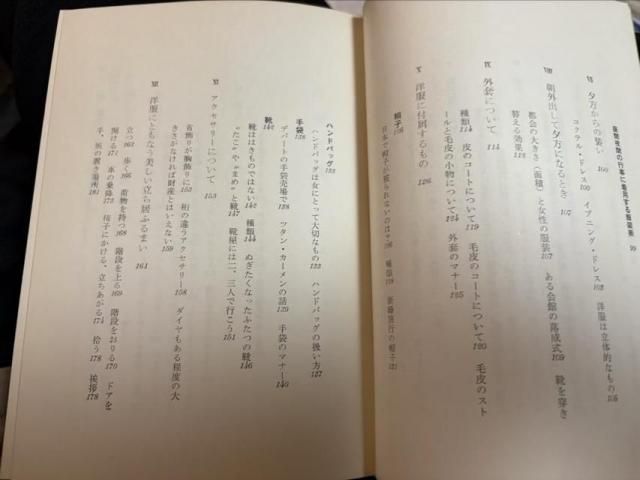 昼間夜間の行事に着用する服装表 99
VII 夕方からの装い 100
コクテル・ドレス 100 イブニング・ドレス 102 洋服は立体的なもの 105
VIII 朝外出して夕方になるとき 107
都会の大きさ(面積)と女性の服装 107 ある会館の落成式 109 靴を穿き
替える効果 112
IX 外套について 114
種類 114 皮のコートについて 119 毛皮のコートについて 120 毛皮のスト
ールと毛皮の小物について 124 外套のマナー 125
X 洋服に付属するもの 126
帽子 126
日本で帽子が被られないのは 126 種類 128 新婚旅行の帽子 131
ハンドバッグ 132
ハンドバッグは女にとって大切なもの 132 ハンドバッグの扱い方 137
手袋 138
デパートの手袋売場で 138 ツタン・カーメンの話 139 手袋のマナー 140
靴 142
靴ははきものではない 142 種類 144 ぬぎたくなったふたつの靴 146
“たこ”や“まめ”と靴 147 靴屋には二、三人で行こう 151
XI アクセサリーについて 153
首飾りが胸飾りに 153 桁の違うアクセサリー 158 ダイヤもある程度の大
きさがなければ財産とはいえない 159
XII 洋服にともなう美しい立ち居ふるまい 161
立つ 163 歩く 166 荷物を持つ 168 階段を上る 169 階段をおりる 170 ドアを
開ける 171 車の乗降 173 椅子にかける、立ちあがる 174 拾う 178 挨拶 178
手、肘の置き場所 181